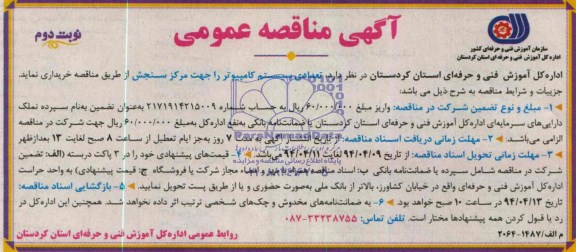 آگهی مناقصه عمومی
نوبت دوم
سازمان آموزش فنی و حرفه‌ای کشور
اداره کل آموزش فنی و حرفه‌ای استان کردستان
اداره کل آموزش فنی و حرفه‌ای استان کردستان در نظر دارد، تعدادی سیستم کامپیوتر را جهت مرکز سنجش از طریق مناقصه خریداری نماید.
جزییات و شرایط مناقصه به شرح ذیل می باشد:
۱- مبلغ و نوع تضمین شرکت در مناقصه: واریز مبلغ ۶۰/۰۰۰/۰۰۰ ریال به حساب شماره ۲۱۷۱۹۱۴۲۱۵۰۰۹ به‌عنوان تضمین به‌نام سپرده تملک
دارایی‌های سرمایه‌ای اداره کل آموزش فنی و حرفه‌ای استان کردستان یا ضمانت‌نامه بانکی به‌نفع اداره کل به‌مبلغ ۶۰/۰۰۰/۰۰۰ ریال جهت شرکت در مناقصه
الزامی می‌باشد. ۲- مهلت زمانی دریافت اسناد مناقصه: از تاریخ انتشار آگهی روز به‌جز ایام تعطیل از ساعت ۸ صبح لغایت ۱۳ بعدازظهر
۳- مهلت زمانی تحویل اسناد مناقصه: از تاریخ ۹۴/۰۴/۰۹ لغایت ۹۴/۰۴/۱۱ قیمت‌های پیشنهادی خود را در ۳ پاکت دربسته (الف: تضمین
شرکت در مناقصه شامل سپرده یا ضمانت‌نامه بانکی ب: اسناد مناقصه همراه با مهر و امضاء مجاز شرکت یا فروشگاه ج: قیمت پیشنهادی) به واحد حراست
اداره کل آموزش فنی و حرفه‌ای واقع در خیابان کشاورز، بالاتر از بانک ملی به‌صورت حضوری و یا از طریق پست تحویل نمایید. ۵- بازگشایی اسناد مناقصه:
در تاریخ ۹۴/۰۴/۱۳ در ساعت ۱۰ صبح خواهد بود. ۶- به ضمانت‌نامه‌های مخدوش و چک‌های شخصی ترتیب اثر داده نخواهد شد. همچنین این اداره کل در
رد یا قبول کردن همه پیشنهادها مختار است. تلفن تماس: ۰۸۷-۳۳۲۳۸۷۵۵
م الف/۱۴۸۷-۲۰۶۴
روابط عمومی اداره کل آموزش فنی و حرفه‌ای استان کردستان
ParsNamadData
پایگاه اطلاع رسانی مناقصه و مزایده